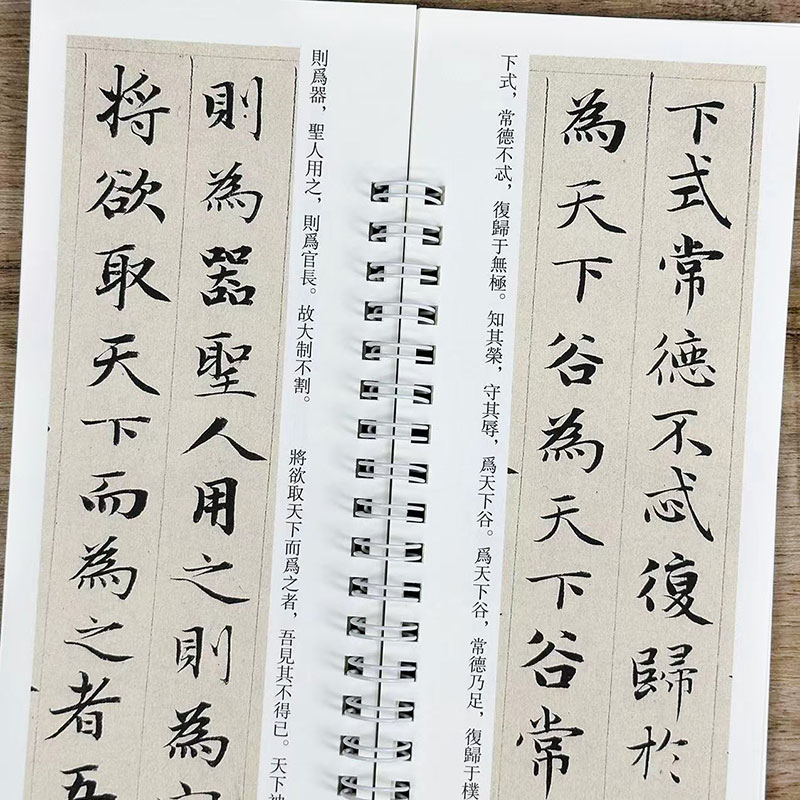 下式常德不忒復歸於
為天下谷為天下谷常
下式，常德不忒，復歸于無極。知其榮，守其辱，爲天下谷。爲天下谷，常德乃足，復歸于樸
則爲器，聖人用之，則爲官長。故大制不割。　將欲取天下而爲之者，吾見其不得已。天下
則為噐聖人用之則為
將欲取天下而為之者